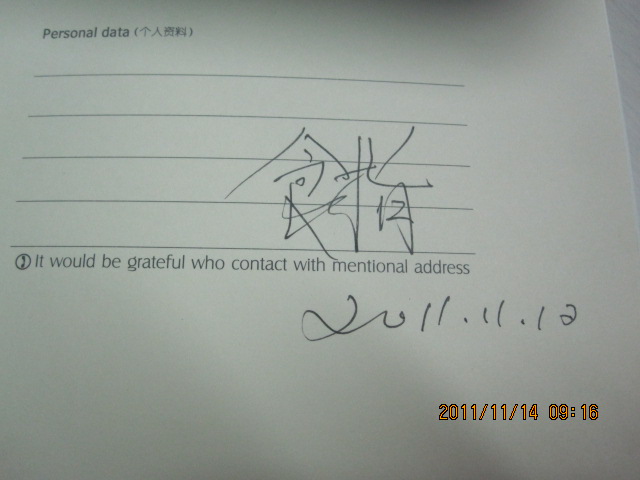 Personal data (个人资料)
① It would be grateful who contact with mentional address
2011.11.12
2011/11/14 09:16